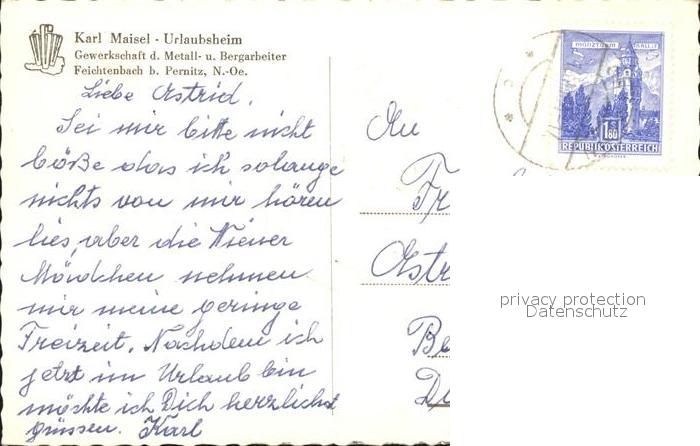 Karl Maisel - Urlaubsheim
Gewerkschaft d. Metall- u. Bergarbeiter
Feichtenbach b. Pernitz, N.-Oe.
Liebe Astrid,
Sei mir bitte nicht
böße das ich solange
nichts von mir hören
lies, aber die Wiener
Mädchen nehmen
mir meine geringe
Freizeit. Nachdem ich
jetzt im Urlaub bin
möchte ich Dich herzlichst
grüssen. Karl
An
Fr
Astr
Be
MÜNZTURM HALL I.T.
S
1.80
REPUBLIK ÖSTERREICH
privacy protection
Datenschutz